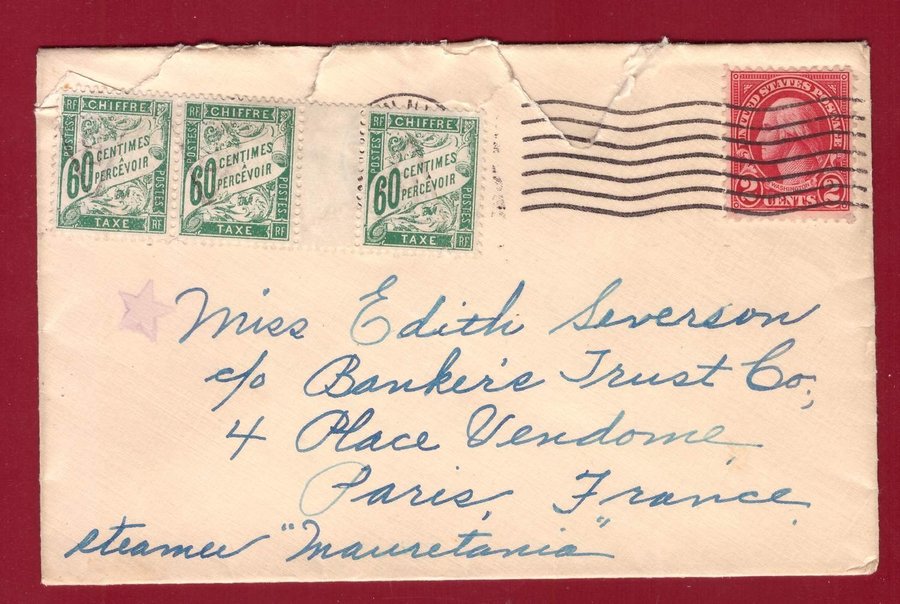 RF CHIFFRE
POSTES
60 CENTIMES À PERCEVOIR
POSTES
TAXE RF
RF CHIFFRE
POSTES
60 CENTIMES À PERCEVOIR
POSTES
TAXE RF
RF CHIFFRE
POSTES
60 CENTIMES À PERCEVOIR
POSTES
TAXE RF
UNITED STATES POSTAGE
WASHINGTON
2 CENTS 2
Miss Edith Severson
c/o Banker's Trust Co.,
4 Place Vendome
Paris, France.
steamer "Mauretania"